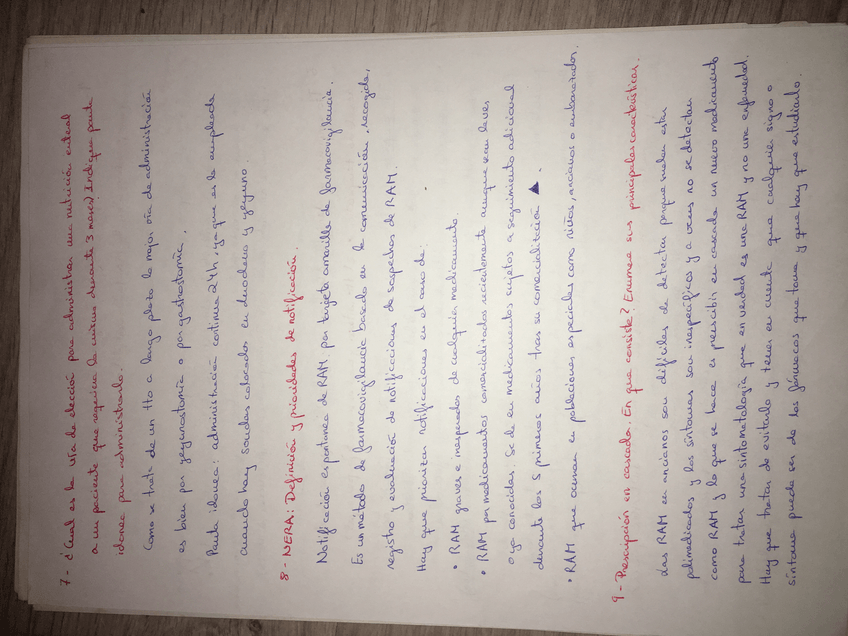 7- ¿Cual es la vía de elección para administrar una nutrición enteral
a un paciente que requiere la misma durante 3 meses? Indique pauta
idonea para administrarlo.
Como se trata de un tto a largo plazo la mejor vía de administración
es bien por yeyunostomía o por gastrostomía.
Pauta idonea: administración continua 24h, ya que es la empleada
cuando hay sondas colocadas en duodeno y yeyuno.
8- NERA: Definición y prioridades de notificación.
Notificación espontanea de RAM por tarjeta amarilla de farmacovigilancia.
Es un método de farmacovigilancia basado en la comunicación, recogida,
registro y evaluación de notificaciones de sospechas de RAM.
Hay que priorizar notificaciones en el caso de:
• RAM graves e inesperadas de cualquier medicamento.
• RAM por medicamentos comercializados recientemente aunque sean leves
o ya conocidas. Se da en medicamentos sujetos a seguimiento adicional
durante los 5 primeros años tras su comercialización ▲.
• RAM que ocurran en poblaciones especiales como niños, ancianos o embarazadas.
9- Prescripción en cascada. En que consiste? Enumere sus principales características.
Las RAM en ancianos son difíciles de detectar porque suelen estar
polimedicados y los síntomas son inespecíficos y a veces no se detectan
como RAM y lo que se hace es prescribir en cascada un nuevo medicamento
para tratar una sintomatología que en verdad es una RAM y no una enfermedad.
Hay que tratar de evitarlo y tener en cuenta que cualquier signo o
síntoma puede ser de los fármacos que toma y que hay que estudiarlo.